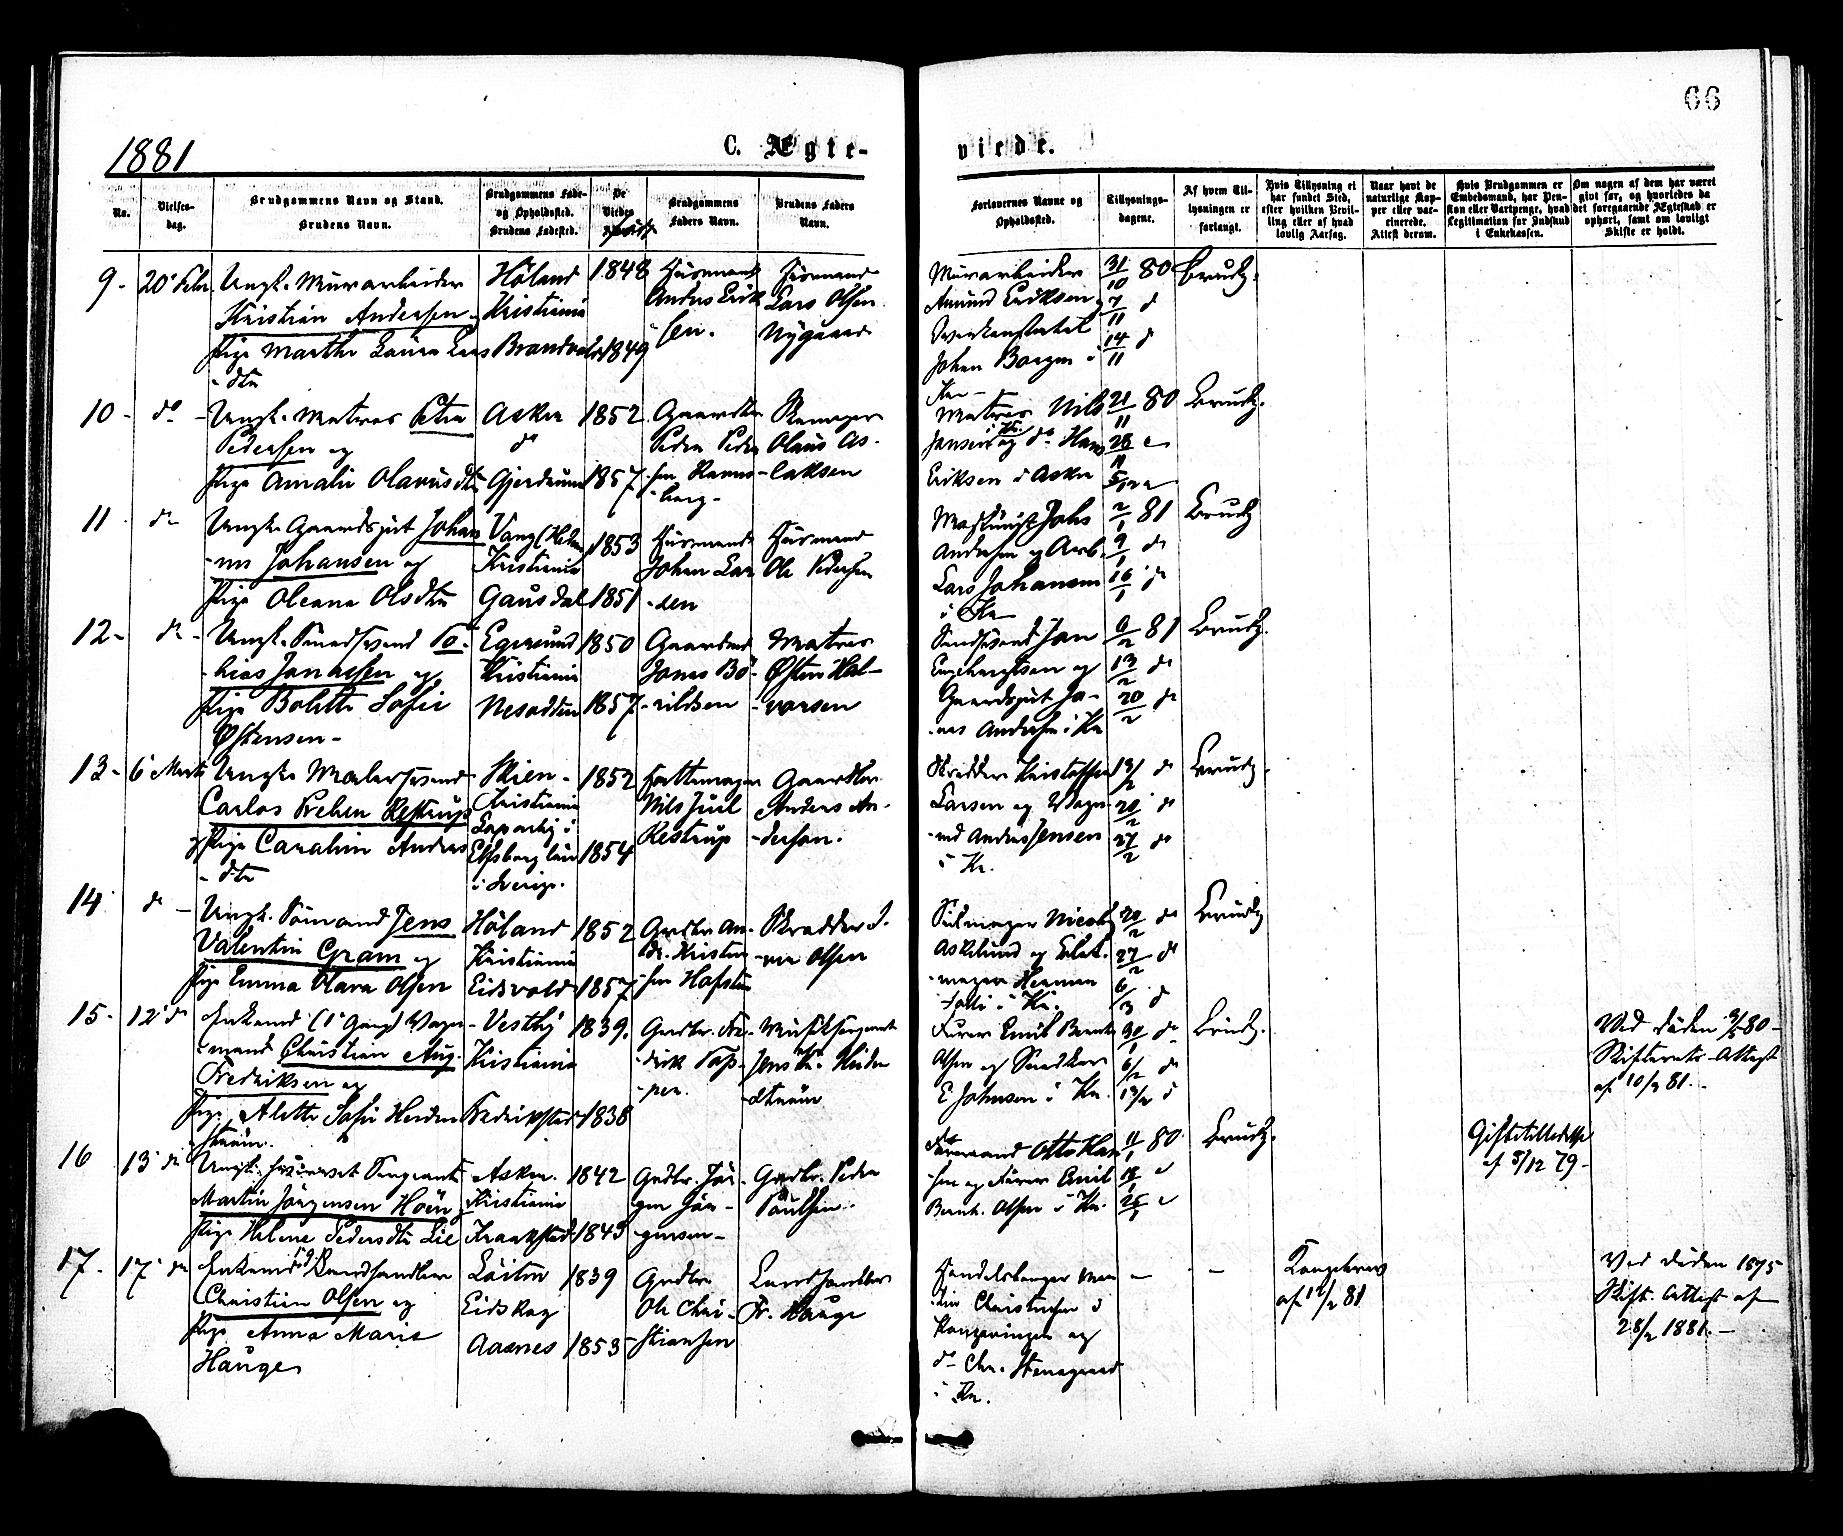 66
1881
C. Ægte-
viede.
No.
Vielses-
dag.
Brudgommens Navn og Stand.
Brudens Navn.
Brudgommens Føde-
og Opholdssted.
Brudens Fødested.
De
Viedes
Brudgommens
Faders Navn.
Brudens Faders
Navn.
Forlovernes Navne og
Opholdssted.
Tillysnings-
dagene.
Af hvem Til-
lysningen er
forlangt.
Hvis Tillysning ei
har fundet Sted,
efter hvilken Bevil-
ling eller af hvad
lovlig Aarsag.
Naar havt de
naturlige Kop-
per eller vac-
cinerede.
Attest derom.
Hvis Brudgommen er
Embedsmand, har Pen-
sion eller Vartpenge, hvad
Legitimation for Indskud
i Enkekassen.
Om nogen af dem har været
gift før, og hvorledes da
det foregaaende Ægteskab er
ophørt, samt om lovligt
Skifte er holdt.
9 - 20' Febr.
Ungk. Murarbeider
Kristian Andersen og
Pige Marthe Laura Lars
- dtr
Höland
Kristiania
Brandval
1848
1849
Husmand
Anders Erik
- sen.
Husmand
Lars Olsen
Nygaard
Murarbeider
Amund Eriksen og
Johan Borgen i
Kra -
31/10 80
7/11 d
14/11 d
Brudg.
10 - do -
Ungk. Matros Petter
Pedersen og
Pige Amalie Olavusdtr
Asker
do
Gjerdrum
1852
1857
Peder Peder
- sen Ravns
- berg -
Olaus As-
- laksen
Matros Nils
Jansen i Kr. og do Hans
Eriksen i Asker
21/11 80
28/11
5/12
Brudg.
11 do
Ungk. Gaardsgut Johan
- nes Johansen og
Pige Oleana Olsdtr
Vang (Hedm.
Kristiania
Gausdal
1853
1851
Husmand
Johan Lar
- sen
Husmand
Ole Pedersen
Johs
Andersen og Arb.
Lars Johansen
i Kra
2/1 81
9/1 do
16/1 do
Brudg
12 - do -
Ungk. Smedsvend To-
- bias Jonassen og
Pige Bolette Sofie
Østensen -
Egersund
Kristiania
Nesodden
1850
1857
Gaardmd
Jonas Bö -
- rildsen
Matros
Østen Hal-
- vorsen
Smedsvend Jan
Engebregtsen og
Gaardsgut Jo-
- nas Andersen i Kr
6/2 81
13/2 do
20/2 do
Brudg.
13 - 6' Marts
Ungk. Malersvend
Carlos Preben Restrup
og Pige Caroline Anders
- dtr
Skien -
Kristiania
Elfsborg län
i Sverige.
1852
1854
Hattemager
Nils Juul
Restrup
Gaardbr.
Anders An-
- dersson.
Skrædder Kristoffer
Larsen og Vogn-
- md Anders Jensen
i Kr.
13/2 do
20/2 do
27/2 do
Brudg.
14 do -
Ungk. Sömand Jens
Valentin Gram og
Pige Emma Olava Olsen
Höland
Kristiania
Eidsvold
1852
1857
Grdbr An-
dr. Kristen
- sen Hofstad
Skrædder I-
- ver Olsen
Seilmager Nicolay
Asklund og Blok-
- mager Herman
i Kr.
20/2 do
27/2 do
6/3 d
Brudg
15 - 12' do
Enkemd (1' Gang) Vogn-
- mand Christian Aug.
Fredriksen og
Pige Alette Sofie Heiden
- ström.
Vestby
Kristiania
Fredrikstad
1839.
1838
Grdbr. Fre-
- drik Top-
- pen.
Musiksergeant
Jens Kr. Heiden
- ström
Furer Emil Bernt
Olsen og Snedker
E Johnsen i Kr.
30/1 do
6/2 do
13/2 d
Brudg.
Ved Döden 9/5 80 -
Skifterets-Attest
af 10/2 81.
16 13' do
Ungk. Sergeant
Martin Jörgensen Höen og
Pige Helene Pedersdtr Lie
Asker.
Kristiania
Kraakstad
1842
1843
Grdbr. Jör -
- gen Jör -
- gensen -
Grdbr. Peder
Paulsen.
Otto Han
- sen og Furer Emil
Bernt. Olsen i Kr.
11/1 80
18/1
25/1
Brudg.
Giftetilladelse
af 5/12 79 -
17 - 17' do
Enkemd 1. G. Landhandler
Christian Olsen og
Pige Anna Marie
Hauge
Löiten
Eidskog
Aasnes
1839
1853
Grdbr
Ole Chri-
- stiansen
Landhandler
Fr. Hauge
Handelsborger Mar
- tin Christensen i
Kongsvinger og
do Chr. Stensgaard
i Kr.
-
-
Kongebrev
af 12/2 81
Ved Döden 1875
Skift. Attest af
28/2 1881. -